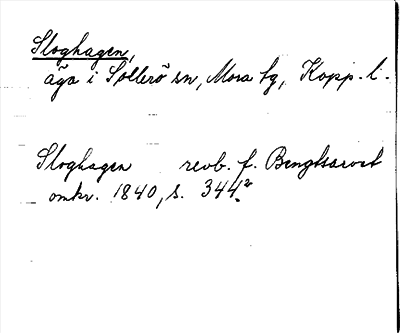 Sloghagen,
äga i Sollerö sn, Mora tg, Kopp. l.
Sloghagen revb. f. Bengtsarvet
omkr. 1840, s. 344²